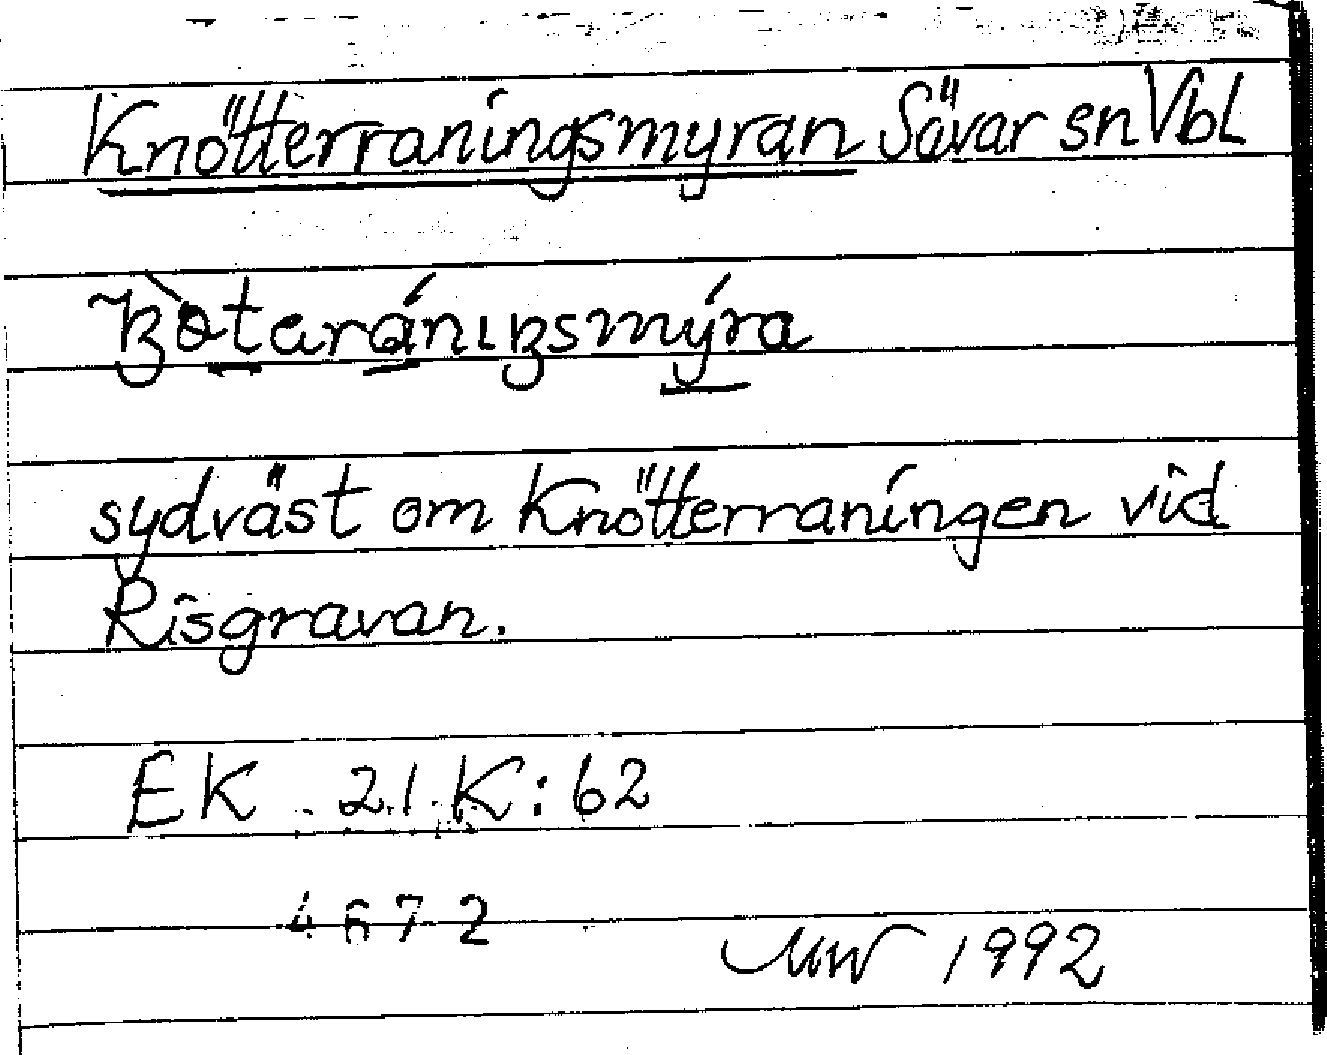 Knötterraningsmyran Sävar sn Vbl
sydväst om Knötterraningen vid
Risgravan.
EK 21 K:62
4672
MW 1992